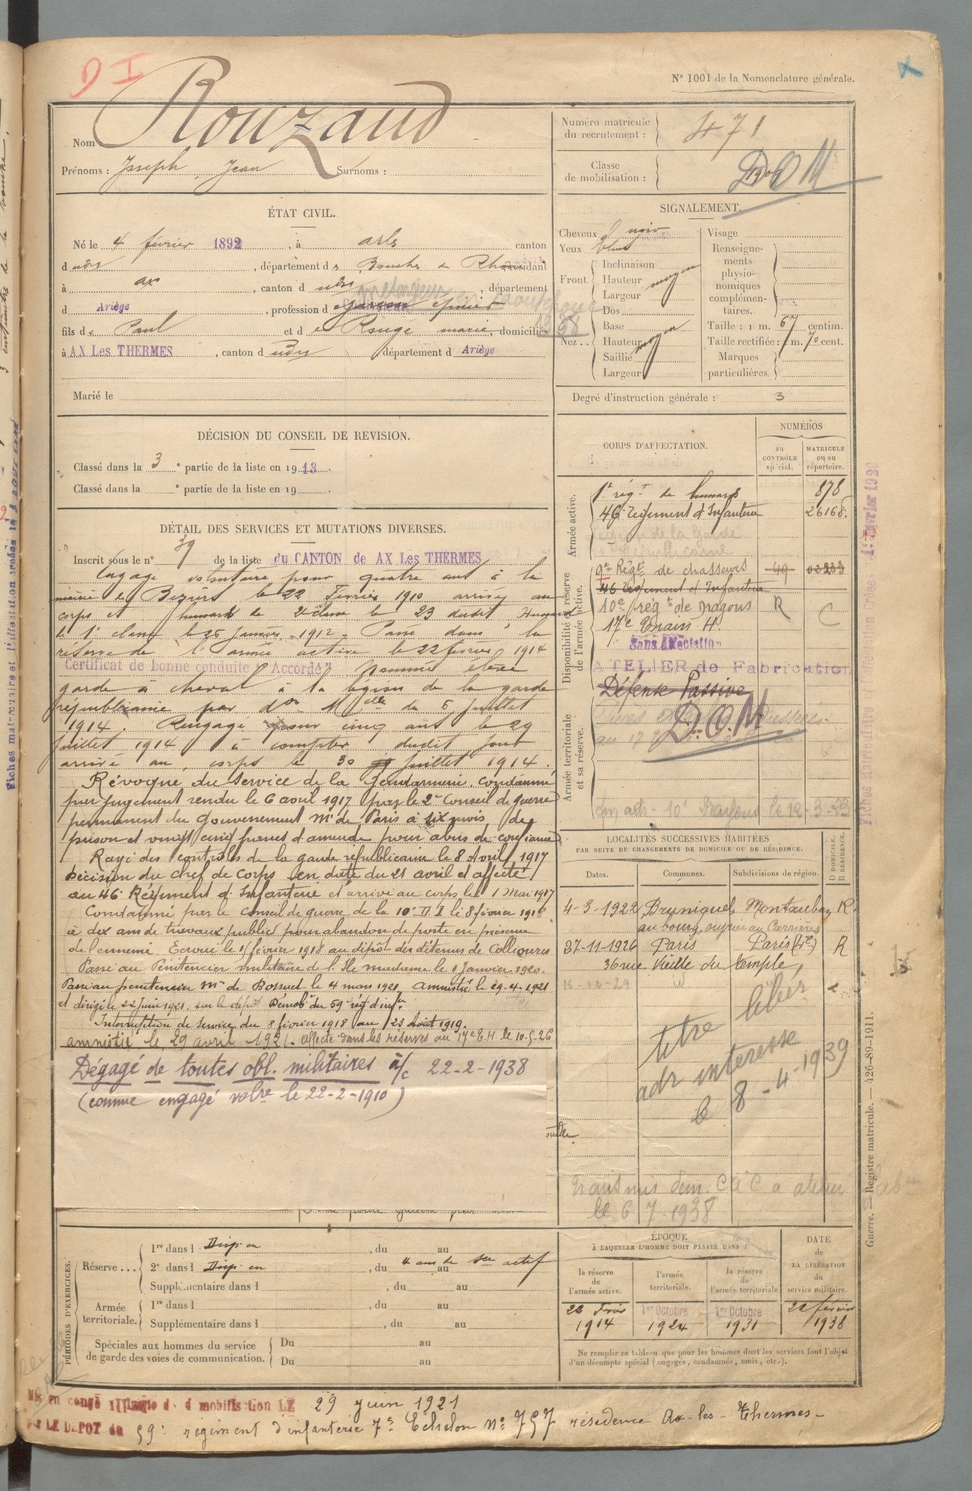 D I
N° 1001 de la Nomenclature générale.
Nom Rouzaud
Prénoms : Joseph Jean Surnoms :
Numéro matricule du recrutement : 471
Classe de mobilisation : DOM
ÉTAT CIVIL.
Né le 4 février 1892, à Arls canton
d udt, département ds Bouches d Rhône
à ax, canton d udt, département
d Ariège, profession d épicier
fils de Paul et de Rouge marie, domiciliés
à AX Les THERMES, canton d udt département d Ariège
Marié le
SIGNALEMENT.
Cheveux noir Visage
Yeux bleus Renseignements physionomiques complémentaires.
Front Inclinaison
Hauteur moyen
Largeur
Nez Dos
Base
Hauteur moyen
Saillie
Largeur
Taille : 1 m. 67 centim.
Taille rectifiée : 1 m. 70 cent.
Marques particulières.
Degré d'instruction générale : 3
DÉCISION DU CONSEIL DE REVISION.
Classé dans la 3e partie de la liste en 1913.
Classé dans la e partie de la liste en 19
DÉTAIL DES SERVICES ET MUTATIONS DIVERSES.
Inscrit sous le n° 39 de la liste du CANTON de AX Les THERMES
Engagé volontaire pour quatre ans à la
mairie de Béziers le 22 Février 1910 arrivé au
corps et hussard de 2e classe le 23 dudit Hussard
de 1e classe le 25 Janvier 1912. Passé dans la
réserve de l'armée active le 22 février 1914
Certificat de bonne conduite "Accordé" nommé élève
garde à cheval à la légion de la garde
républicaine par don Melle du 6 juillet
1914. Rengagé pour cinq ans le 29
juillet 1914 à compter dudit jour
arrivé au corps le 30 juillet 1914.
Révoqué du service de la Gendarmerie. Condamné
par jugement rendu le 6 avril 1917 par le 2e Conseil de guerre
permanent du Gouvernement Mre de Paris à six mois de
prison et vingt cinq francs d'amende pour abus de confiance
Rayé des contrôles de la garde républicaine le 8 Avril 1917
Décision du chef de corps en date du 21 avril et affecté
au 46e Régiment d'Infanterie et arrivé au corps le 1 Mai 1917
Condamné par le Conseil de guerre de la 10e D I le 8 février 1918
à dix ans de travaux publics pour abandon de poste en présence
de l'ennemi Ecroué le 1/février 1918 au dépôt des détenus de Collioures
Passé au Pénitencier militaire d Janvier 1920.
Passé au pénitencier Mre de Bossuet le 4 mars 1921, amnistié le 29-4-1921
et dirigé le 22 Juin 1921 sur le dépôt Démob du 59e rég d'infie
Interruption de service du 8 février 1918 au 23 Août 1919.
amnistié le 29 avril 1921. affecté dans les réserves au 17e E H le 10-5-26
Dégagé de toutes obl. militaires à/c 22-2-1938
(comme engagé volre le 22-2-1910)
CORPS D'AFFECTATION.
NUMÉROS
AU CONTRÔLE spécial.
MATRICULE ou au répertoire.
Armée active.
1e régt de hussards 878
46e régiment d'Infanterie 26168.
Disponibilité et réserve de l'armée active.
9e Régt de chasseurs 49
46 Régiment d'Infanterie
10e regt de Dragons R C
17e Train H.
Sans Affectation
ATELIER de Fabrication
Défense Passive
D.O.M
Armée territoriale et sa réserve.
10e Dragons le 12-3-23
LOCALITÉS SUCCESSIVES HABITÉES
PAR SUITE DE CHANGEMENTS DE DOMICILE OU DE RÉSIDENCE.
Dates. Communes. Subdivisions de région. D DOMICILE. R RÉSIDENCE.
4-3-1922 Bruniquel Montauban R.
au bourg,
27-11-1926 Paris Paris R
36 rue Vieille du Temple,
16-12-29
titre libér
adr intéressé
le 8-4-1939
Transmis dem. C à C a atelier
le 6 7 1938
PÉRIODES D'EXERCICES.
Réserve... 1re dans l Disp en, du au
2e dans l Disp en, du 4 ans de Sce actif au
Supplémentaire dans l, du au
Armée territoriale. 1re dans l, du au
Supplémentaire dans l, du au
Spéciales aux hommes du service de garde des voies de communication. Du au
Du au
ÉPOQUE
À LAQUELLE L'HOMME DOIT PASSER DANS :
la réserve de l'armée active. l'armée territoriale. la réserve de l'armée territoriale.
DATE de LA LIBÉRATION du service militaire.
22 Févr 1914 1er Octobre 1924 1er Octobre 1931 22 février 1938
Ne remplir ce tableau que pour les hommes dont les services font l'objet
d'un décompte spécial (engagés, condamnés, omis, etc.).
Guerre. Registre matricule. — 426-80-1911.
Mis en congé illimité de démobilisation LE 29 juin 1921
Par LE DEPOT du 59e régiment d'infanterie 7e Echelon N° 757 résidence Ax-les-Thermes-